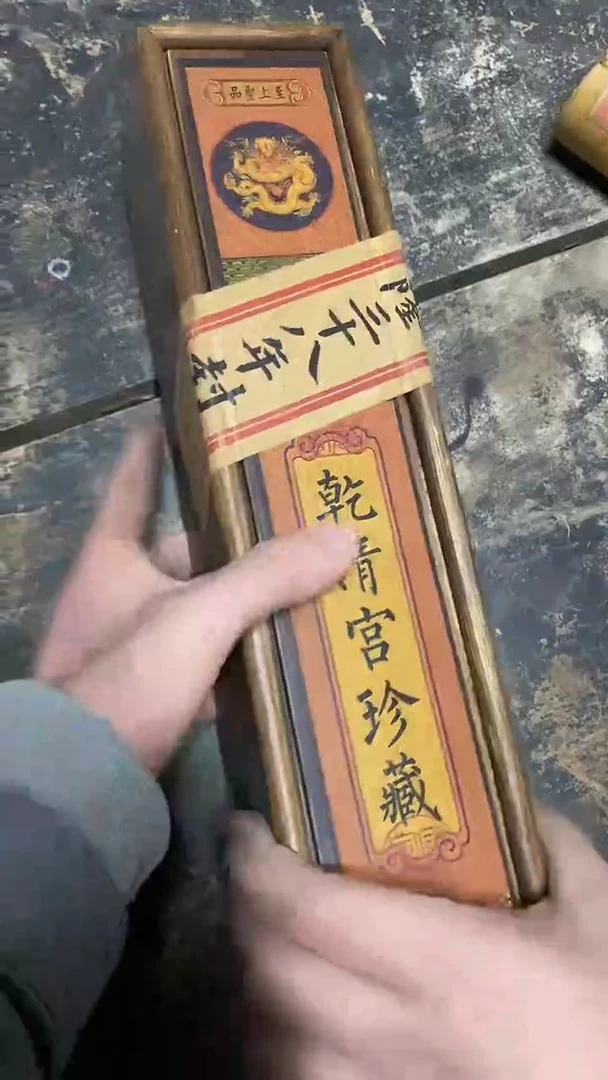 至上聖品
隆三十八年封
乾清宫珍藏